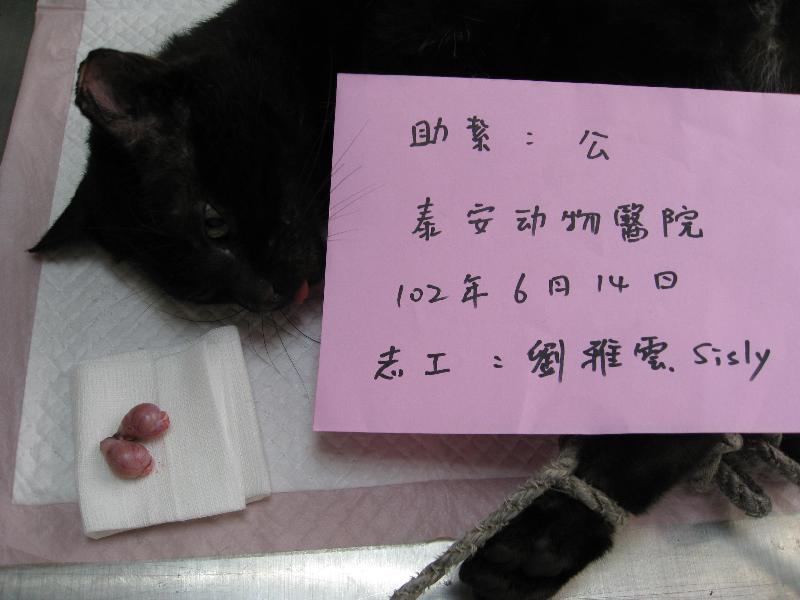 助紮：公
泰安动物醫院
102年6月14日
志工：劉雅雲.Sisly